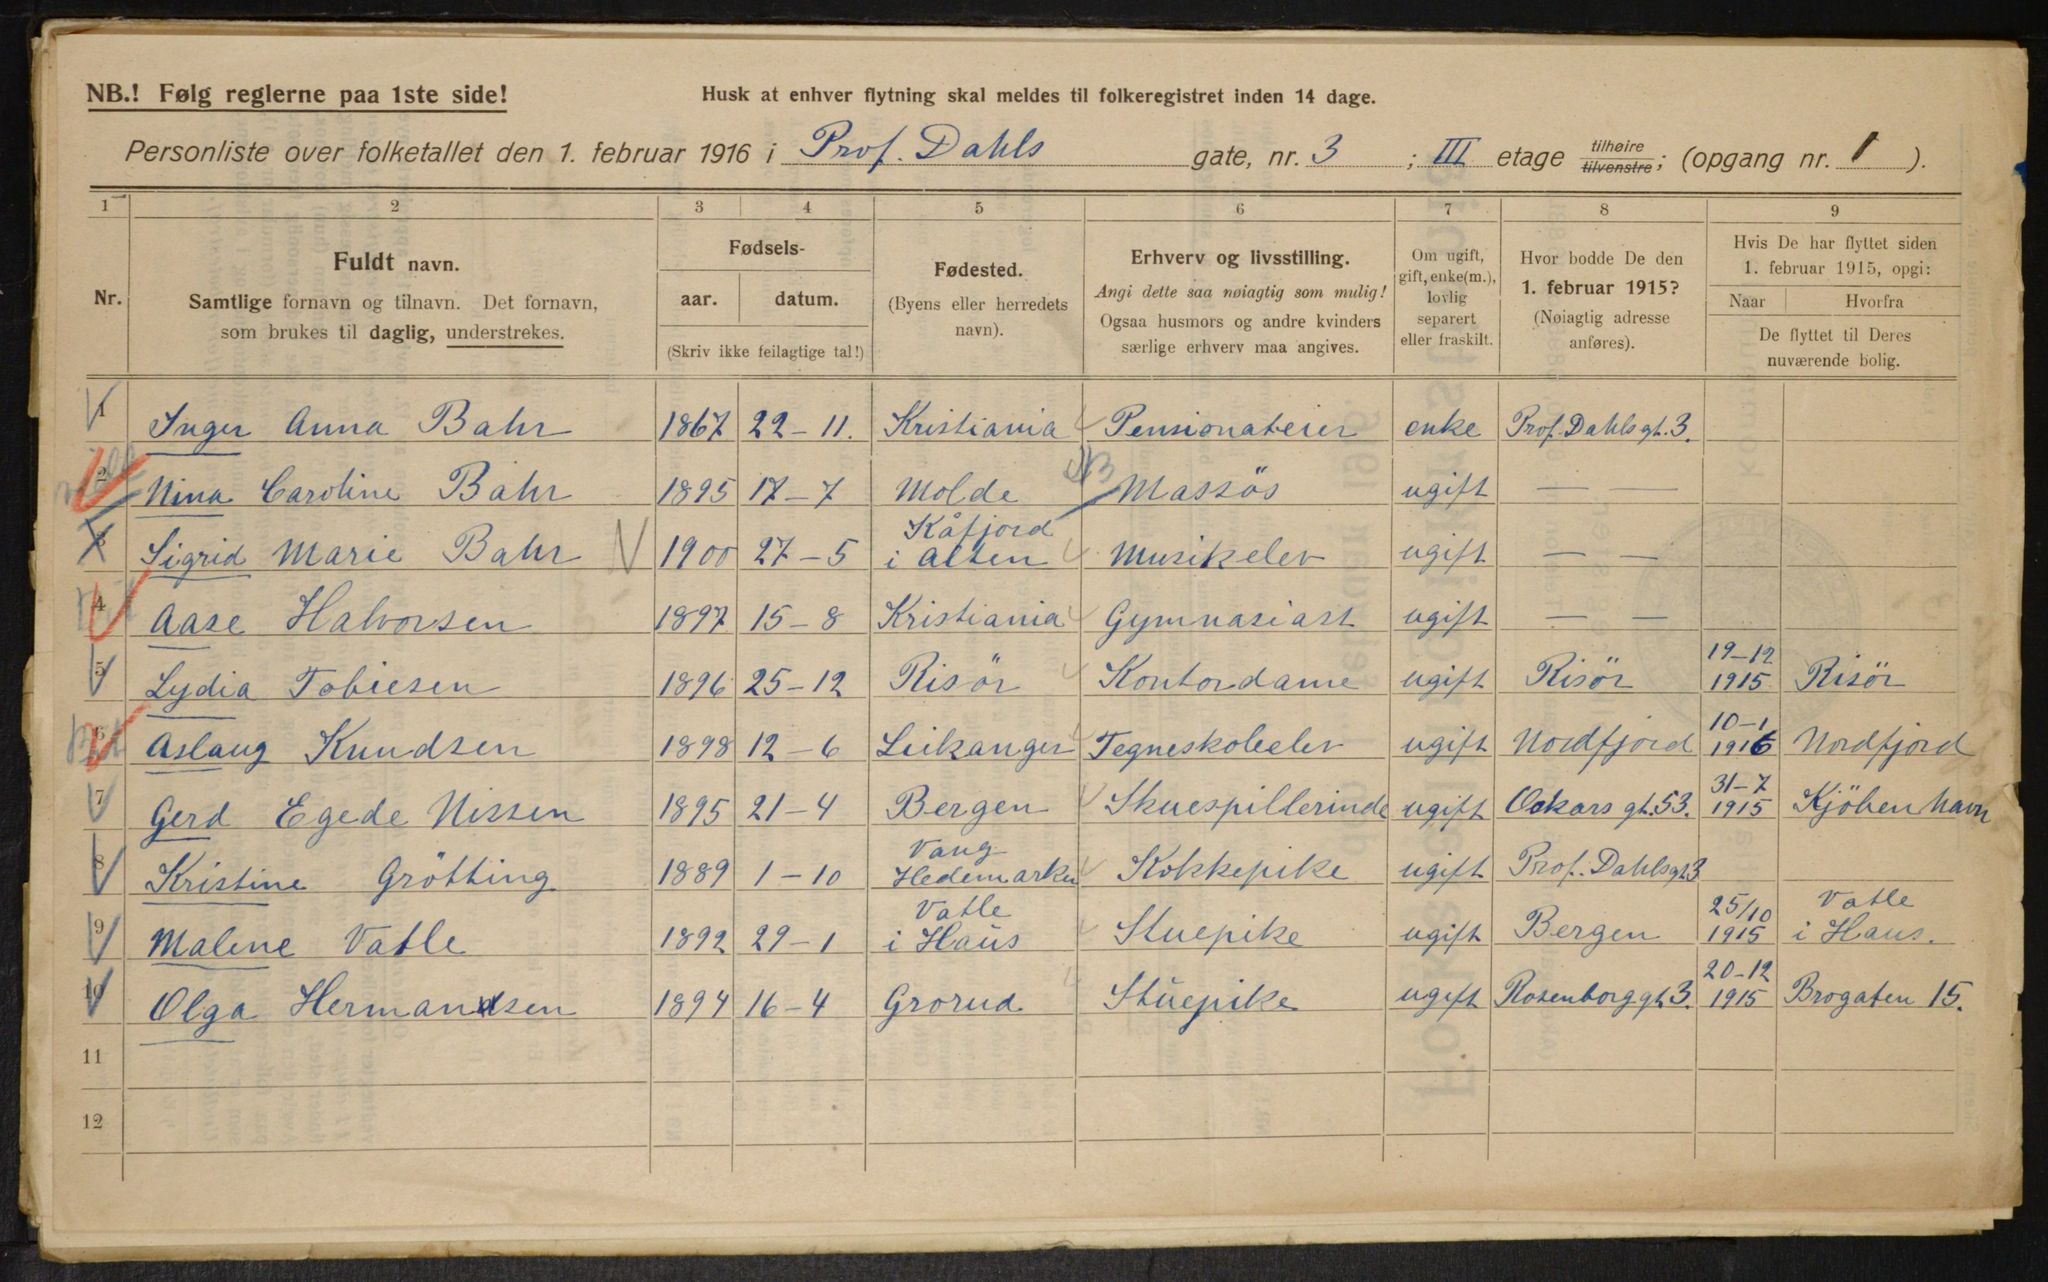 NB.! Følg reglerne paa 1ste side!
Husk at enhver flytning skal meldes til folkeregistret inden 14 dage.
Personliste over folketallet den 1. februar 1916 i Prof. Dahls gate, nr. 3 ; III etage tilhøire tilvenstre; (opgang nr. 1 ).
1 2 3 4 5 6 7 8 9
Nr.
Fuldt navn.
Samtlige fornavn og tilnavn. Det fornavn,
som brukes til daglig, understrekes.
Fødsels-
aar. datum.
(Skriv ikke feilagtige tal!)
Fødested.
(Byens eller herredets
navn).
Erhverv og livsstilling.
Angi dette saa nøiagtig som mulig!
Ogsaa husmors og andre kvinders
særlige erhverv maa angives.
Om ugift,
gift, enke(m.),
lovlig
separert
eller fraskilt.
Hvor bodde De den
1. februar 1915?
(Nøiagtig adresse
anføres).
Hvis De har flyttet siden
1. februar 1915, opgi:
Naar Hvorfra
De flyttet til Deres
nuværende bolig.
1 Inger Anna Bahr 1867 22-11. Kristiania Pensionateier enke Prof. Dahls gt. 3.
2 Nina Caroline Bahr 1895 17-7 Molde Massös ugift — —
3 Sigrid Marie Bahr N 1900 27-5 Kåfjord i Alten Musikelev ugift — —
4 Aase Halvorsen 1897 15-8 Kristiania Gymnasiast ugift — —
5 Lydia Tobiesen 1896 25-12 Risör Kontordame ugift Risör 19-12 1915 Risör
6 Aslaug Knudsen 1898 12-6 Leikanger Tegneskoleelev ugift Nordfjord 10-1 1916 Nordfjord
7 Gerd Egede Nissen 1895 21-4 Bergen Skuespillerinde ugift Oskars gt. 53. 31-7 1915 Kjöbenhavn
8 Kristine Grötting 1889 1-10 Vang Hedemarken Kokkepike ugift Prof. Dahls gt 3
9 Malene Vatle 1892 29-1 Vatle i Haus Stuepike ugift Bergen 25/10 1915 Vatle i Haus.
10 Olga Hermansen 1894 16-4 Grorud Stuepike ugift Rosenborg gt 3. 20-12 1915 Brogaten 15.
11
12